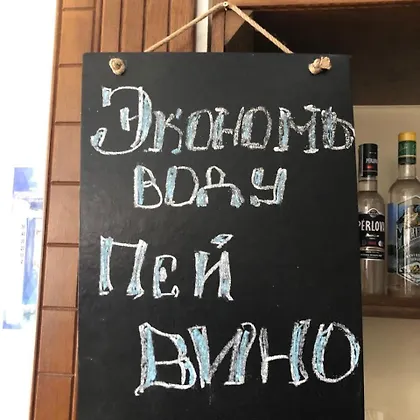 Экономь
воду
Пей
вино
PERLOVA